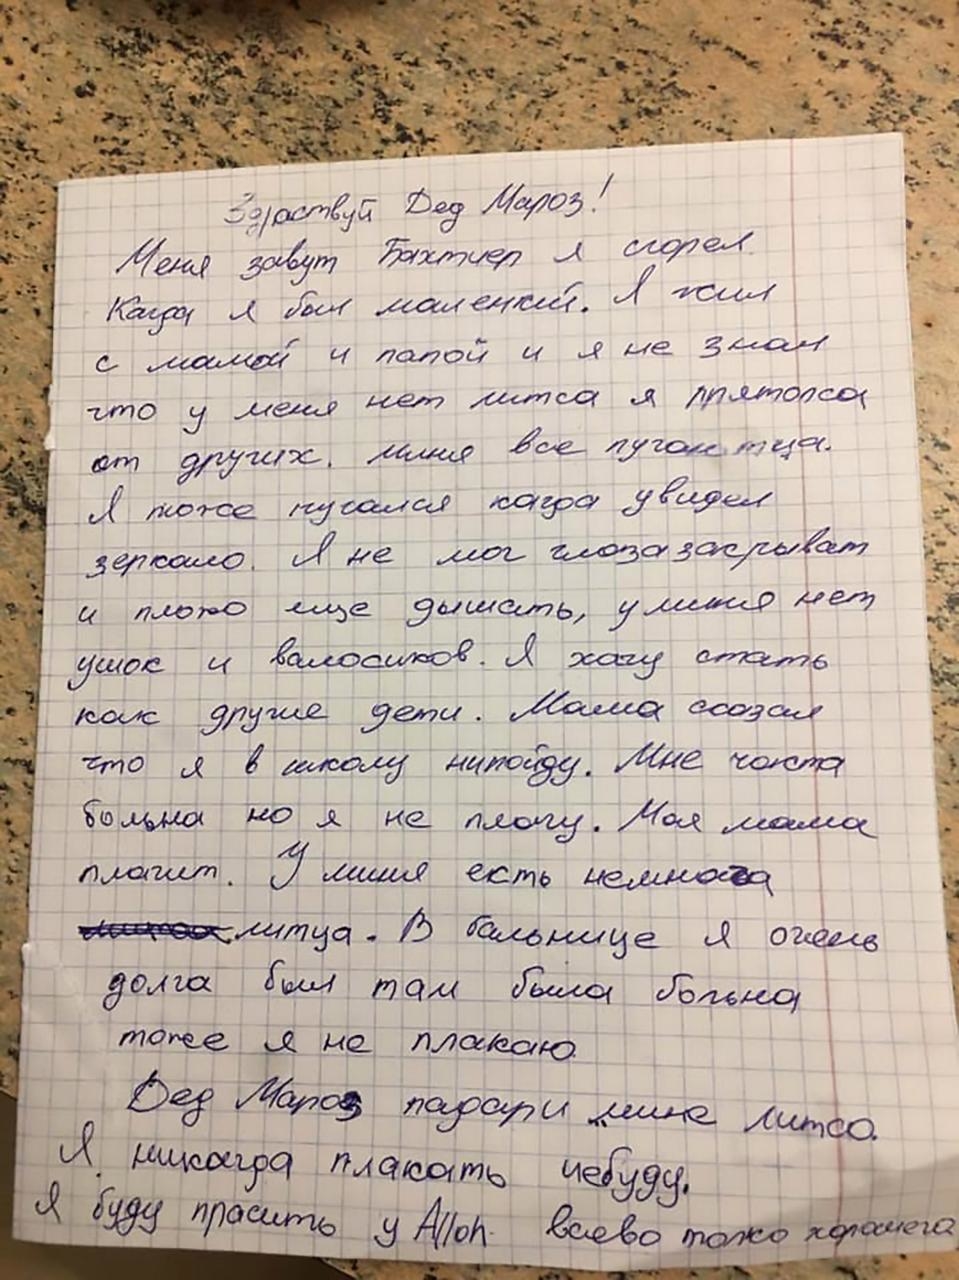 Здраствуй Дед Мароз!
Меня завут Бахтиер я сгорел.
Кагда я был маленкий. Я жил
с мамой и папой и я не знал
что у меня нет литса я прятолса
от других. миня все пугаютца.
Я тоже пугался кагда увидел
зеркало. Я не мог глоза закрыват
и плохо еще дышать, у миня нет
ушок и валосиков. Я хачу стать
как другие дети. Мама сказал
что я в школу нипойду. Мне часта
больна но я не плачу. Моя мама
плачит. У миня есть немнога
литца. В бальнице я очень
долга был там была больна
тоже я не плакаю
Дед Мароз падари мине литсо.
Я никагда плакать небуду.
Я буду прасить у Alloh всево толко хорошега